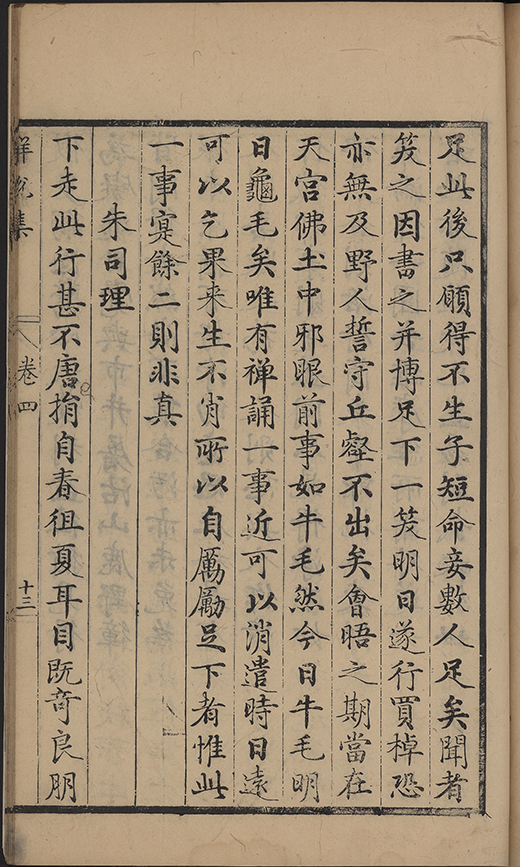 足此後只願得不生子短命妾數人足矣聞者
笑之因書之并博足下一笑明日遂行買棹恐
亦無及野人誓守丘壑不出矣會晤之期當在
天宮佛土中邪眼前事如牛毛然今日牛毛明
日龜毛矣唯有禅誦一事近可以消遣時日遠
可以乞果来生不肖所以自勵勵足下者惟此
一事寔餘二則非真
朱司理
下走此行甚不唐捐自春徂夏耳目既奇良朋
解脫集
卷四
十三